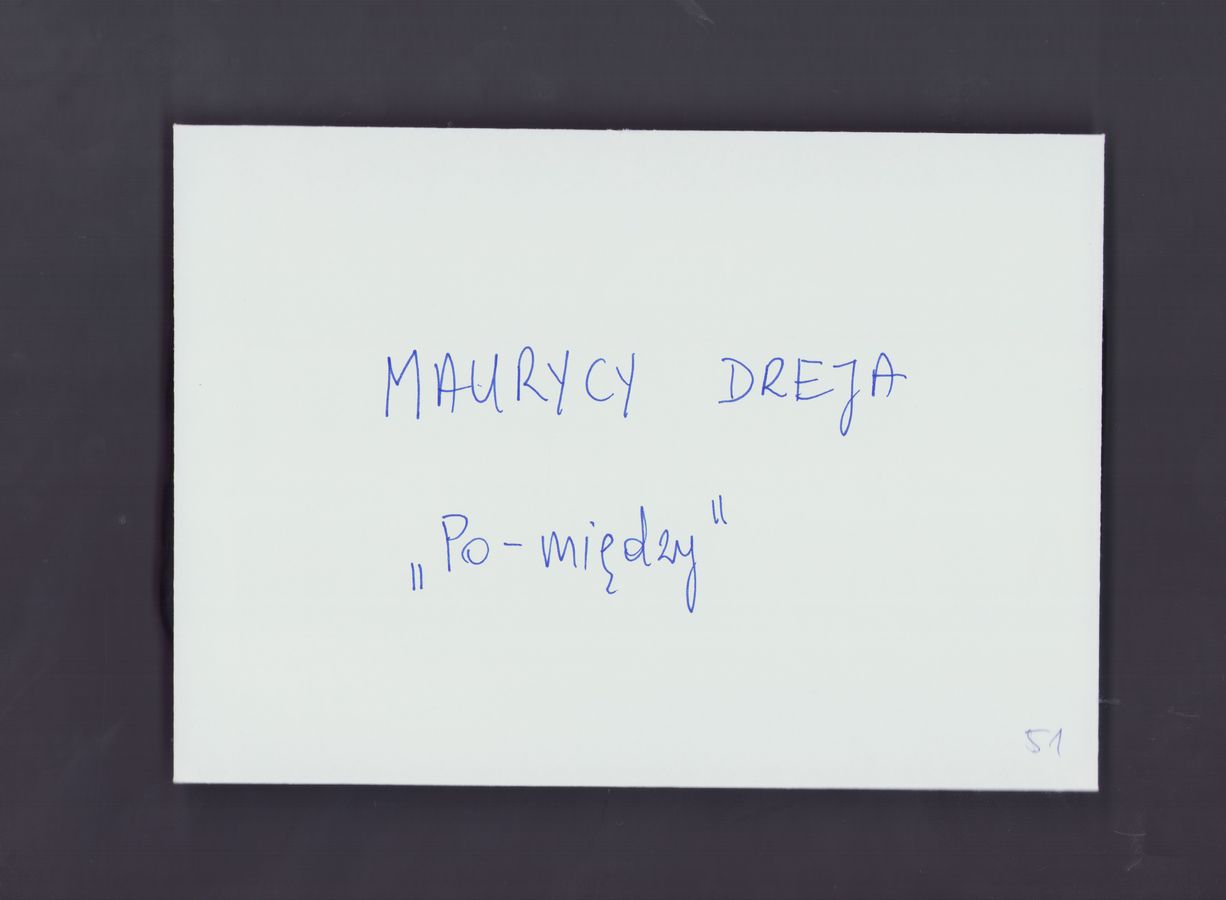 MAURYCY DREJA
„Po-między"
51